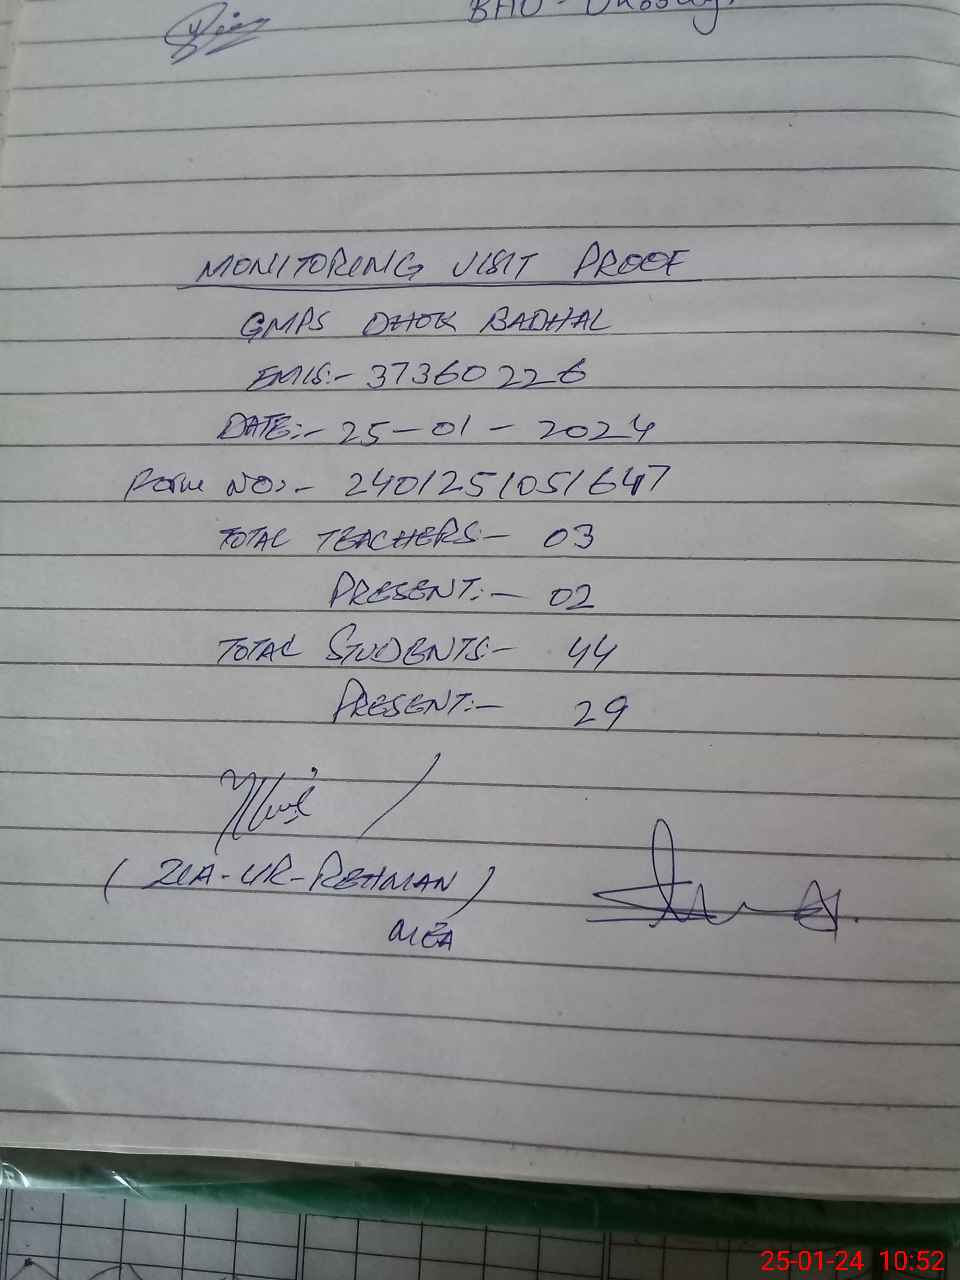 MONITORING VISIT PROOF
GMPS DHOK BADHAL
EMIS:- 37360226
DATE:- 25-01-2024
Form NO:- 2401251051647
TOTAL TEACHERS:- 03
PRESENT:- 02
TOTAL STUDENTS:- 44
PRESENT:- 29
(ZIA-UR-REHMAN)
MEA
25-01-24 10:52